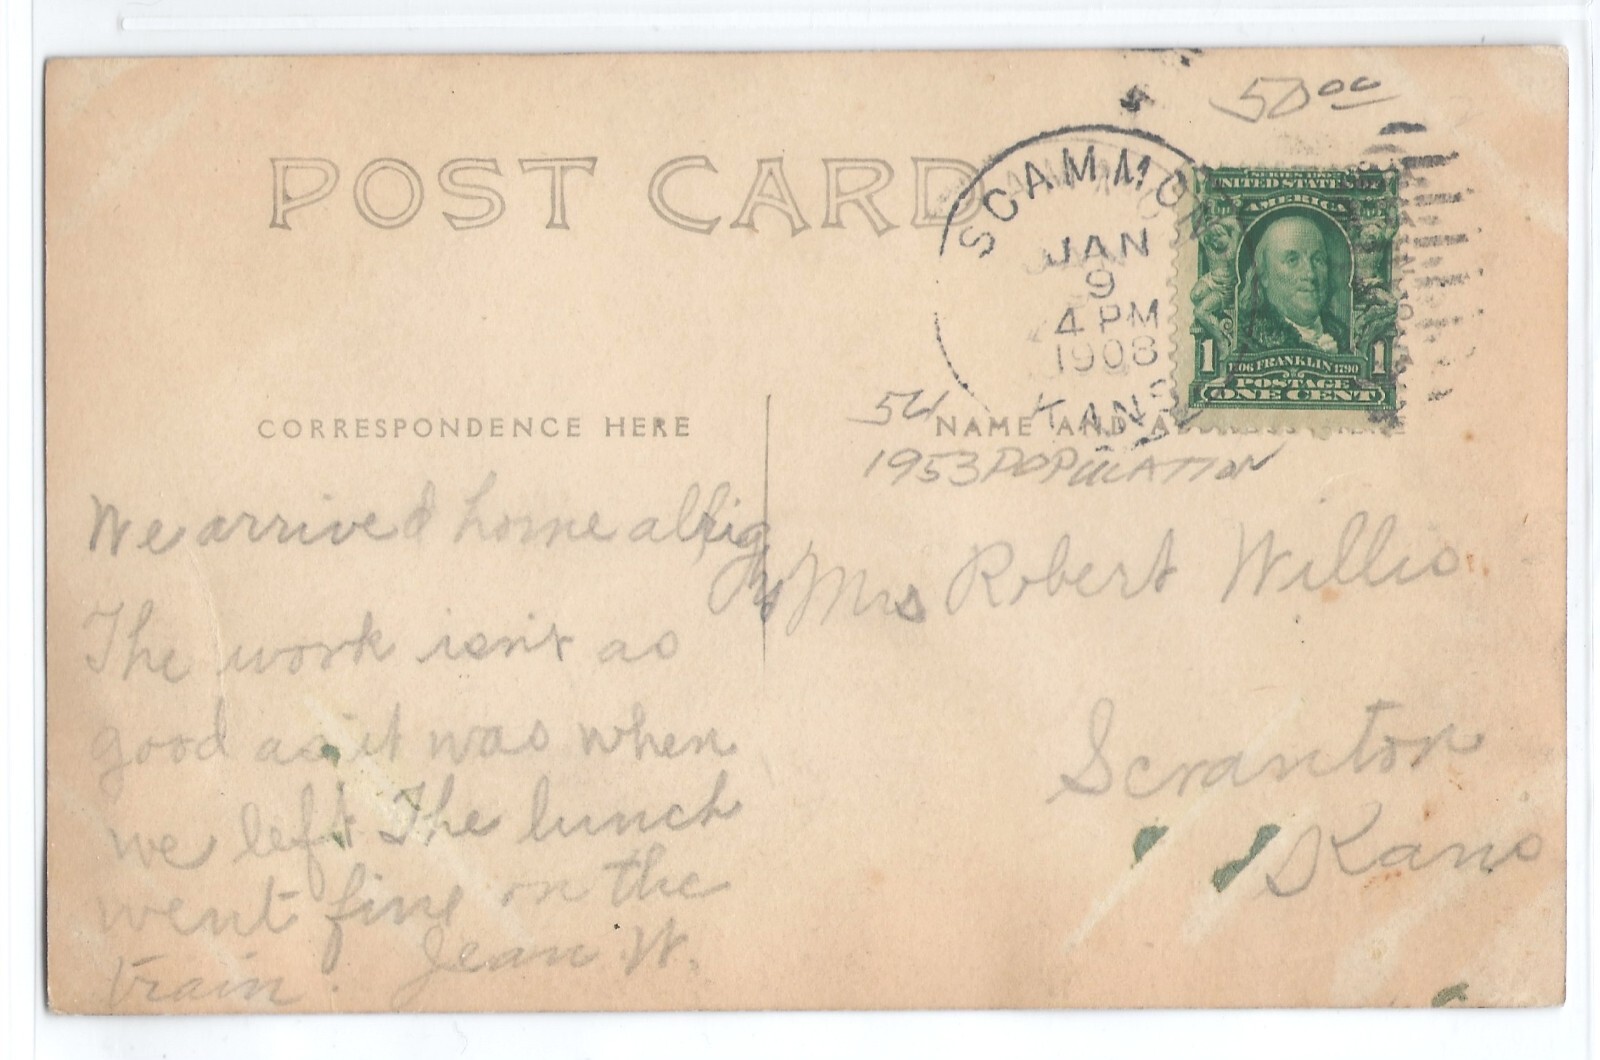 50 00
POST CARD
SCAMMON
JAN
9
4 PM
1908
KANS
SERIES 1902
UNITED STATES
AMERICA
1 1706 FRANKLIN 1790 1
POSTAGE
ONE CENT
CORRESPONDENCE HERE
NAME AND ADDRESS HERE
1953 POPULATION
We arrived home allright
The work isn't as
good as it was when
we left The lunch
went fine on the
train. Jean W.
Mrs Robert Willis.
Scranton
Kans